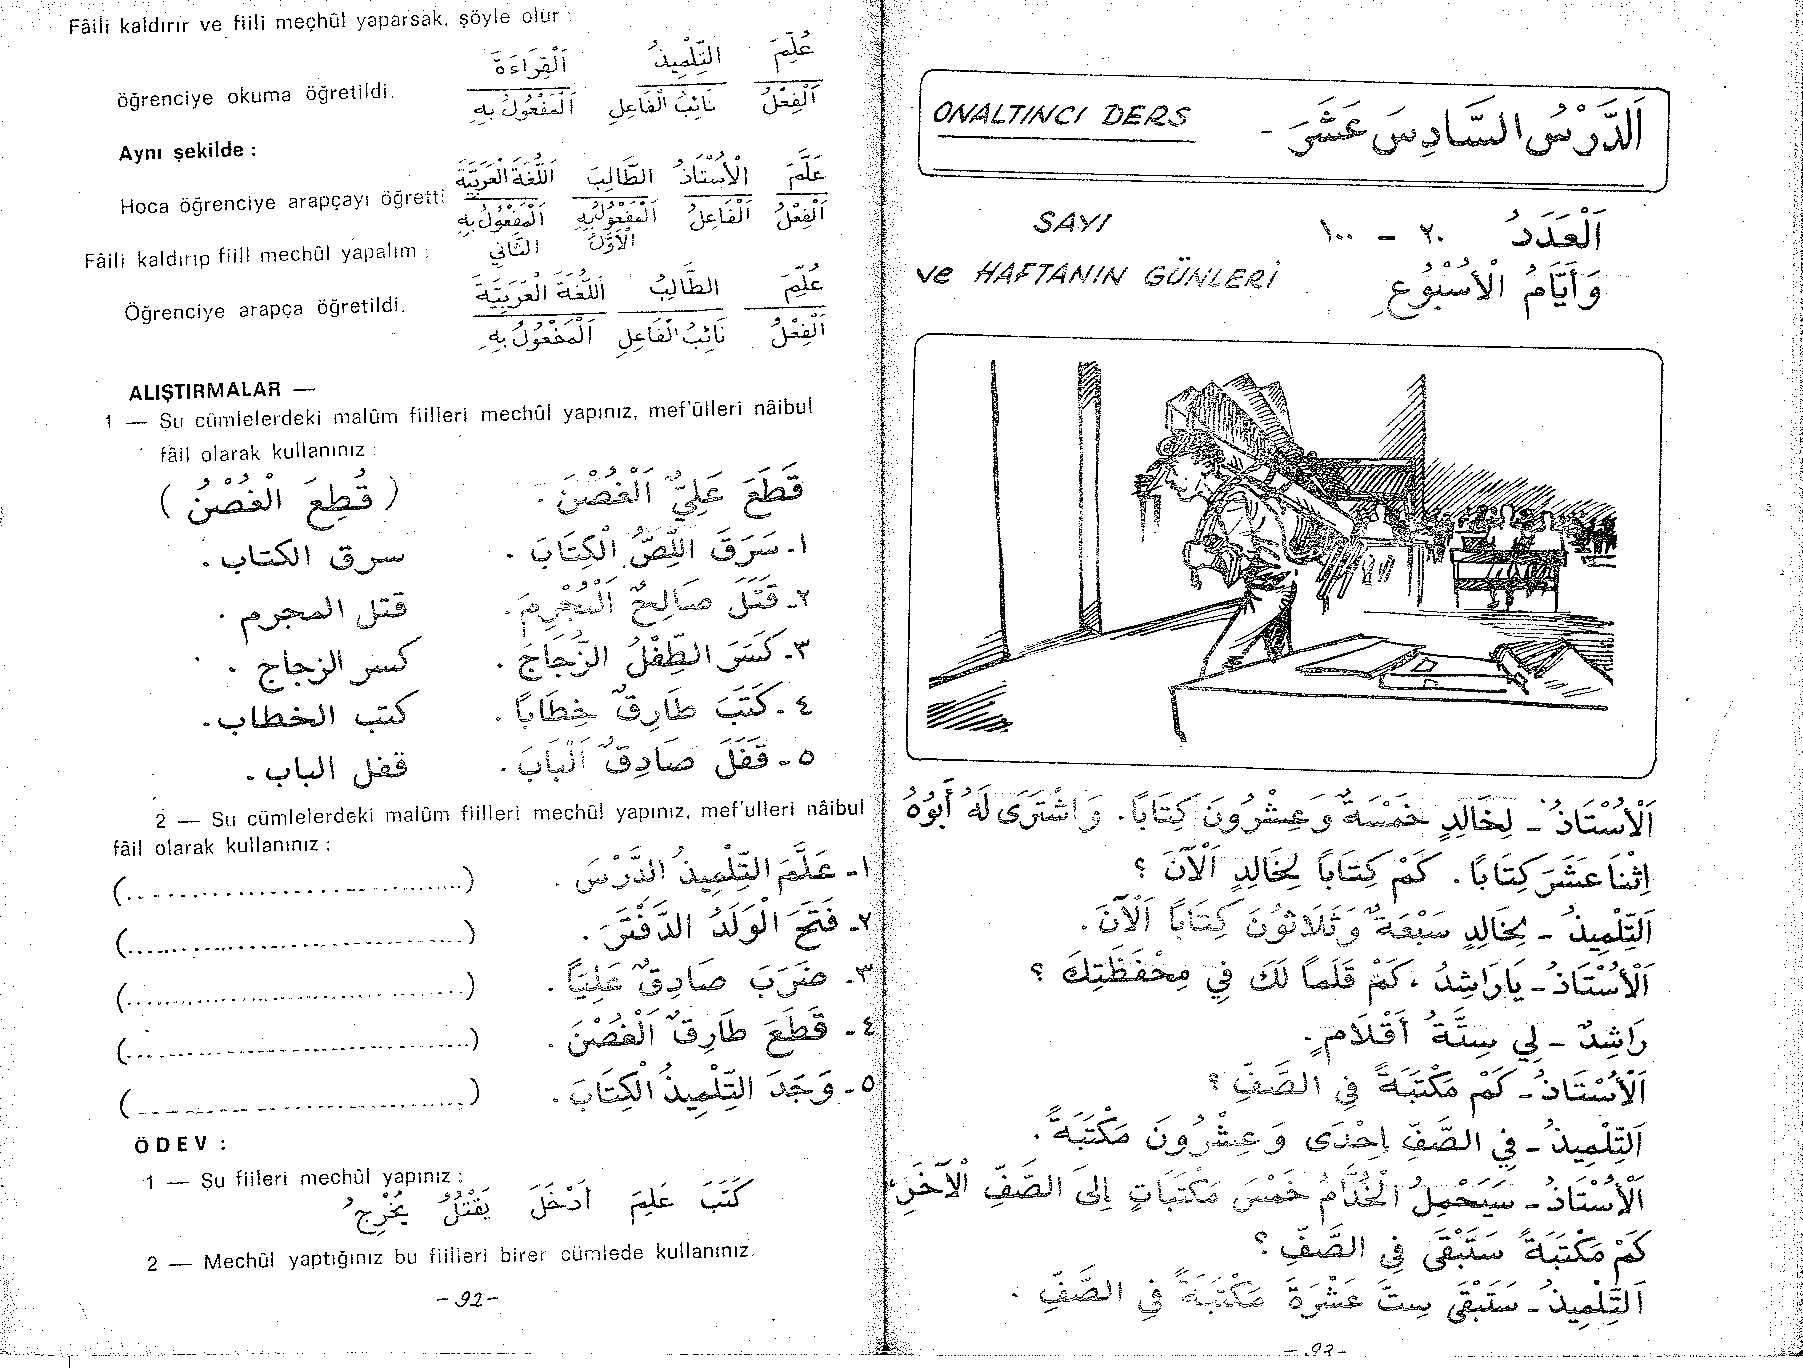 Fâili kaldırır ve fiili meçhûl yaparsak, şöyle olur :
عُلِّمَ التِّلْمِيذُ اَلْقِرَاءَةَ
öğrenciye okuma öğretildi.
اَلْفِعْلُ نَائِبُ الْفَاعِلِ اَلْمَفْعُولُ بِهِ
Aynı şekilde :
عَلَّمَ الْأُسْتَاذُ الطَّالِبَ اَللُّغَةَ الْعَرَبِيَّةَ
Hoca öğrenciye arapçayı öğretti
اَلْفِعْلُ اَلْفَاعِلُ اَلْمَفْعُولُ بِهِ اَلْمَفْعُولُ بِهِ
الْأَوَّلُ الثَّانِي
Fâili kaldırıp fiili mechûl yapalım :
عُلِّمَ الطَّالِبُ اَللُّغَةَ الْعَرَبِيَّةَ
Öğrenciye arapça öğretildi.
اَلْفِعْلُ نَائِبُ الْفَاعِلِ اَلْمَفْعُولُ بِهِ
ALIŞTIRMALAR —
1 — Su cümlelerdeki malûm fiilleri mechûl yapınız, mef'ûlleri nâibul
fâil olarak kullanınız :
قَطَعَ عَلِيٌّ الْغُصْنَ . ( قُطِعَ الْغُصْنُ )
١- سَرَقَ اللِّصُّ الْكِتَابَ . سرق الكتاب .
٢- قَتَلَ صَالِحٌ اَلْمُجْرِمَ . قتل المجرم .
٣- كَسَرَ الطِّفْلُ الزُّجَاجَ . كسر الزجاج .
٤- كَتَبَ طَارِقٌ خِطَابًا . كتب الخطاب .
٥- قَفَلَ صَادِقٌ اَلْبَابَ . قفل الباب .
2 — Su cümlelerdeki malûm fiilleri mechûl yapınız, mef'ulleri nâibul
fâil olarak kullanınız :
١- عَلَّمَ التِّلْمِيذُ الدَّرْسَ . (..............................)
٢- فَتَحَ الْوَلَدُ الدَّفْتَرَ . (..............................)
٣- ضَرَبَ صَادِقٌ عَلِيًّا . (..............................)
٤- قَطَعَ طَارِقٌ اَلْغُصْنَ . (..............................)
٥- وَجَدَ التِّلْمِيذُ الْكِتَابَ . (..............................)
ÖDEV :
1 — Şu fiileri mechûl yapınız :
كَتَبَ عَلِمَ أَدْخَلَ يَقْتُلُ يُخْرِجُ
2 — Mechûl yaptığınız bu fiilleri birer cümlede kullanınız.
-92-
ONALTINCI DERS اَلدَّرْسُ السَّادِسَ عَشَرَ -
SAYI اَلْعَدَدُ ٢٠ - ١٠٠
ve HAFTANIN GÜNLERİ وَأَيَّامُ الْأُسْبُوعِ
اَلْأُسْتَاذُ - لِخَالِدٍ خَمْسَةٌ وَعِشْرُونَ كِتَابًا . وَاشْتَرَى لَهُ أَبُوهُ
اِثْنَا عَشَرَ كِتَابًا . كَمْ كِتَابًا لِخَالِدٍ اَلْآنَ ؟
اَلتِّلْمِيذُ - لِخَالِدٍ سَبْعَةٌ وَثَلَاثُونَ كِتَابًا اَلْآنَ .
اَلْأُسْتَاذُ - يَا رَاشِدُ ، كَمْ قَلَمًا لَكَ فِي مِحْفَظَتِكَ ؟
رَاشِدٌ - لِي سِتَّةُ أَقْلَامٍ .
اَلْأُسْتَاذُ - كَمْ مَكْتَبَةً فِي الصَّفِّ ؟
اَلتِّلْمِيذُ - فِي الصَّفِّ إِحْدَى وَعِشْرُونَ مَكْتَبَةً .
اَلْأُسْتَاذُ - سَيَحْمِلُ الْخُدَّامُ خَمْسَ مَكْتَبَاتٍ إِلَى الصَّفِّ الْآخَرِ ،
كَمْ مَكْتَبَةً سَتَبْقَى فِي الصَّفِّ ؟
اَلتِّلْمِيذُ - سَتَبْقَى سِتَّ عَشْرَةَ مَكْتَبَةً فِي الصَّفِّ .
-93-